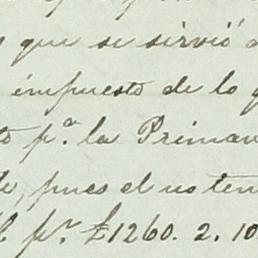 que se sirvió
impuesto de lo
pª. la Primav
pues el no ten
pr. £1260. 2. 10